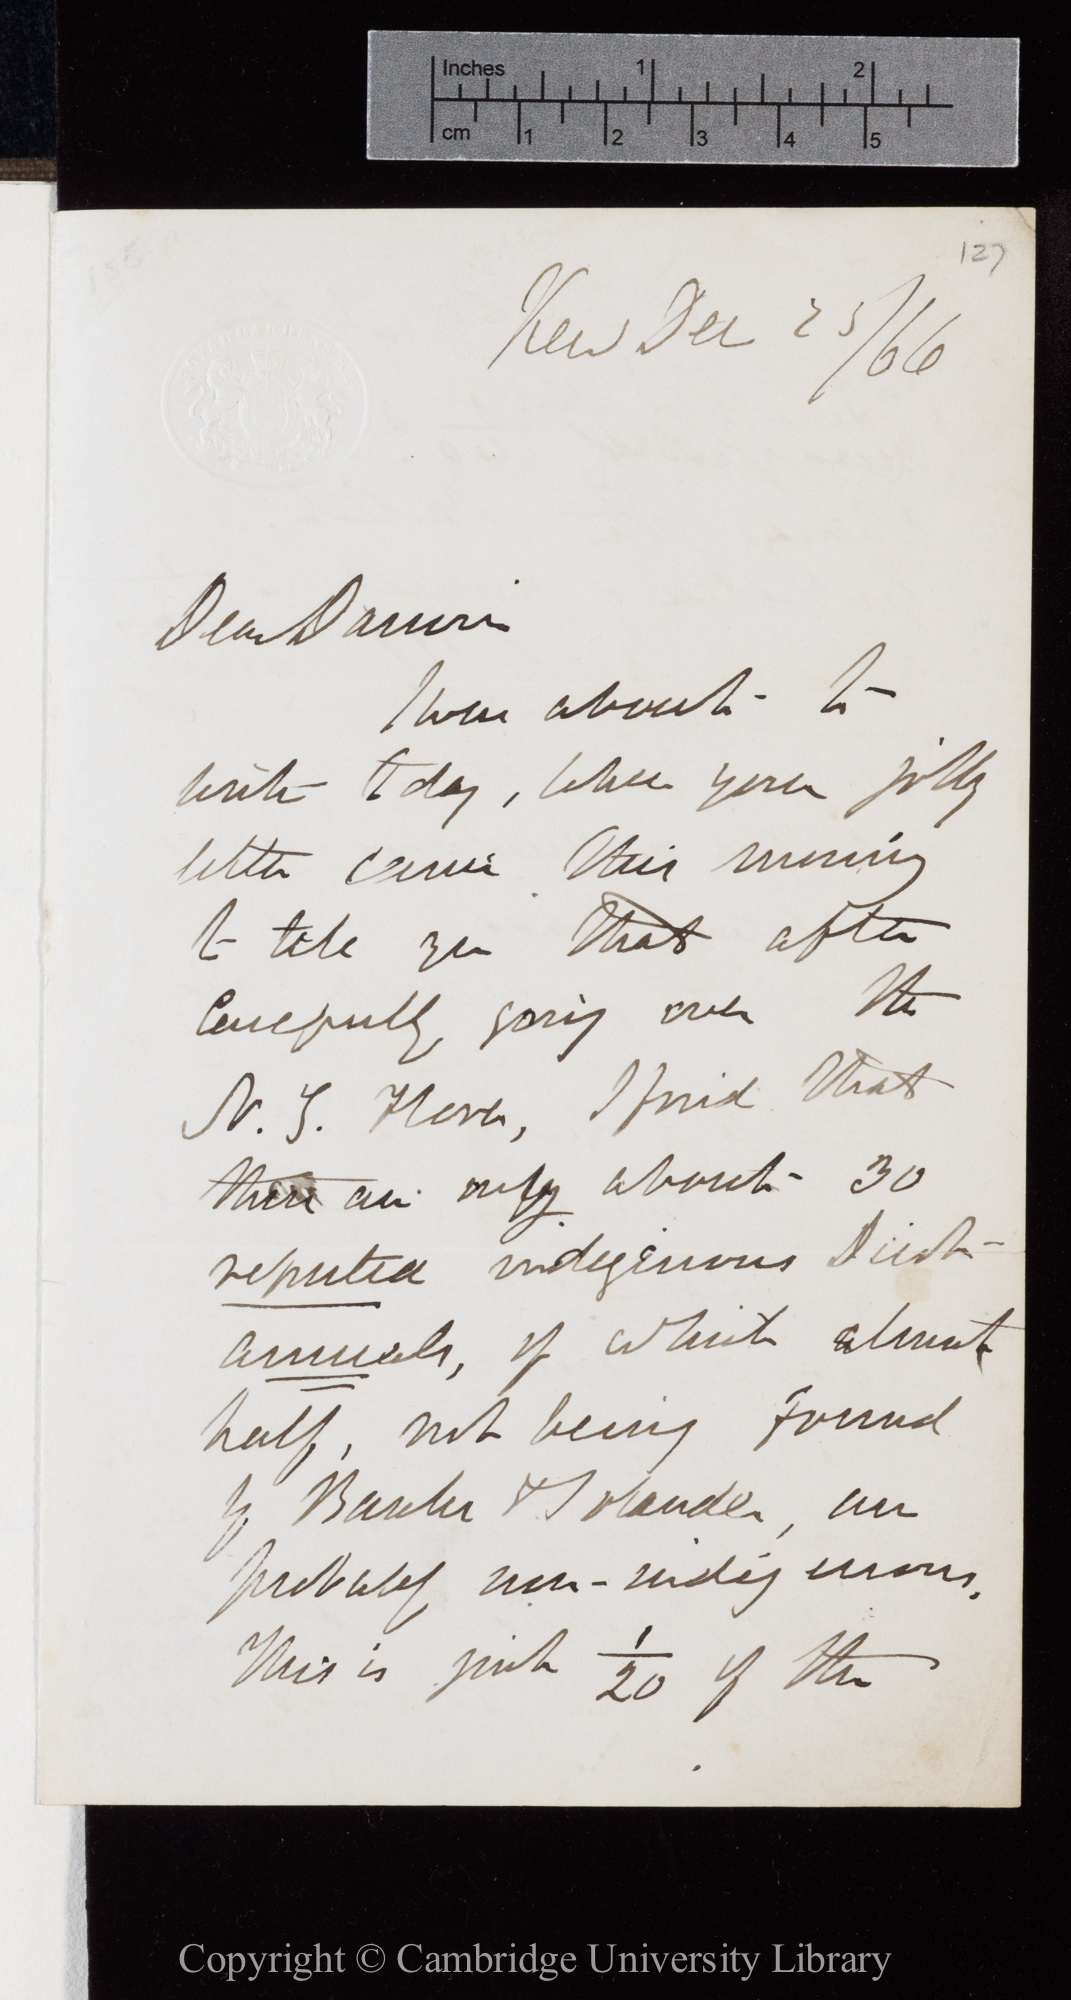 Inches 1 2
cm 1 2 3 4 5
127
Kew Dec 25/66
Dear Darwin
I was about to
write today, when your jolly
letter came this morning
to tell you that after
carefully going over the
N. Z. Flora, I find that
there are only about 30
reputed indigenous Dicot
annuals, of which almost
half, not being found
by Banks & Solander, are
probably non-indigenous.
This is just 1/20 of the
Copyright © Cambridge University Library